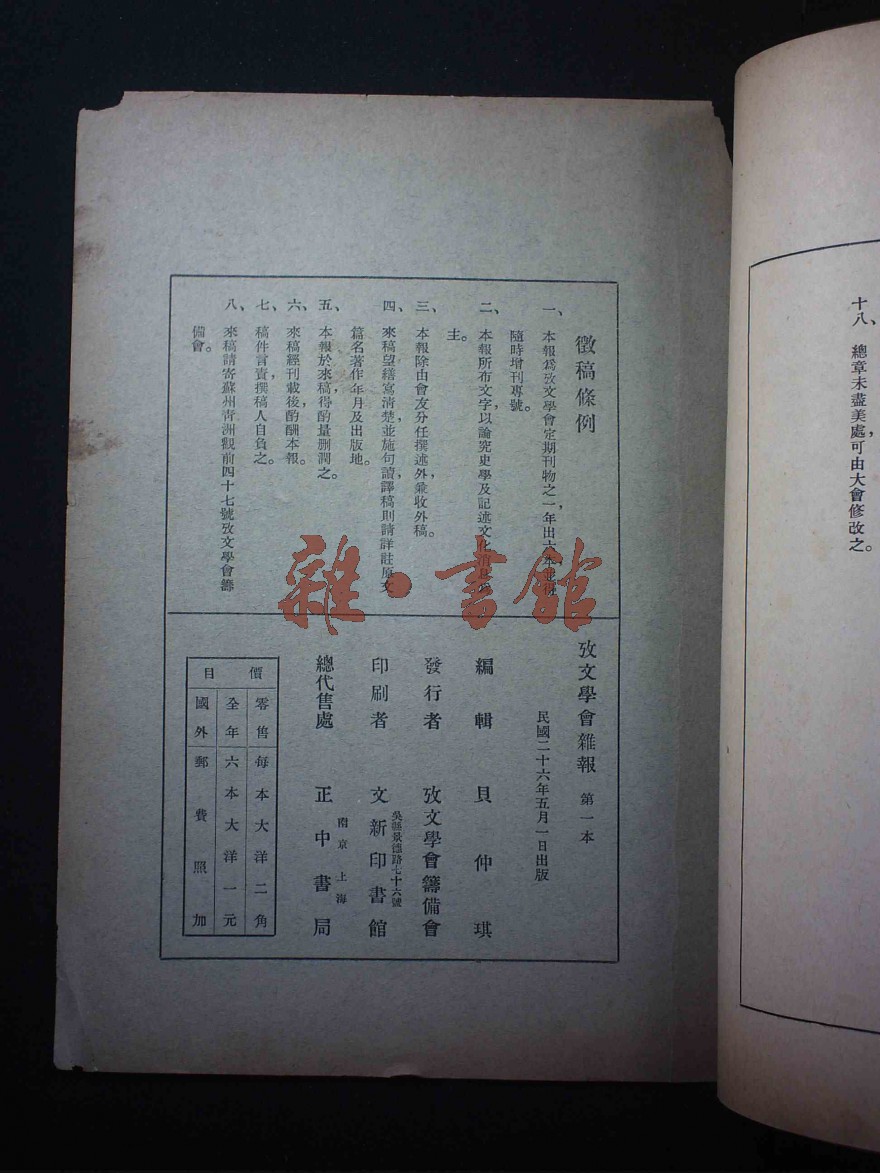 十八、總章未盡美處，可由大會修改之。
徵稿條例
一、本報爲攷文學會定期刊物之一，年出六本，並得
隨時增刊專號。
二、本報所布文字，以論究史學及記述文化消息爲
主。
三、本報除由會友分任撰述外，兼收外稿。
四、來稿望繕寫清楚，並施句讀，譯稿則請詳註原文
篇名著作年月及出版地。
五、本報於來稿，得酌量刪潤之。
六、來稿經刊載後，酌酬本報。
七、稿件言責，撰稿人自負之。
八、來稿請寄蘇州靑洲觀前四十七號攷文學會籌
備會。
攷文學會雜報 第一本
民國二十六年五月一日出版
編輯 貝仲琪
發行者 攷文學會籌備會
吳縣景德路七十六號
印刷者 文新印書館
南京 上海
總代售處 正中書局
價目
零售每本大洋二角
全年六本大洋一元
國外郵費照加
雜·書館